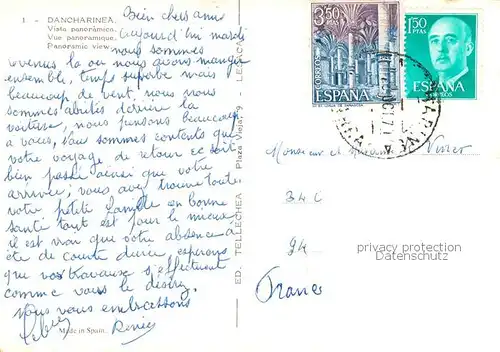 1 - DANCHARINEA.
Vista panorámica.
Vue panoramique.
Panoramic view.
Bien chers amis
aujourd'hui mardi
nous sommes
venus la ou nous avons manger
ensemble, temps superbe mais
beaucoup de vent, nous nous
sommes abrités derrière la
voiture, nous pensons beaucoup
a vous, sommes contents que
votre voyage de retour se soit
bien passé ainsi que votre
arrivée, vous avez trouvé toute
votre petite famille en bonne
santé tant est pour le mieux
il est vrai que votre absence a
été de courte durée esperons
que vos travause s'effectuent
comme vous le désirez.
Nous vous embrassons
Denise
Made in Spain.
ED. TELLECHEA - Plaza Vieja, 9 - LESACA
3,50 PTAS
CORREOS
ESPAÑA
1,50 PTAS
ESPAÑA
CORREOS
Monsieur et
94
France
privacy protection
Datenschutz